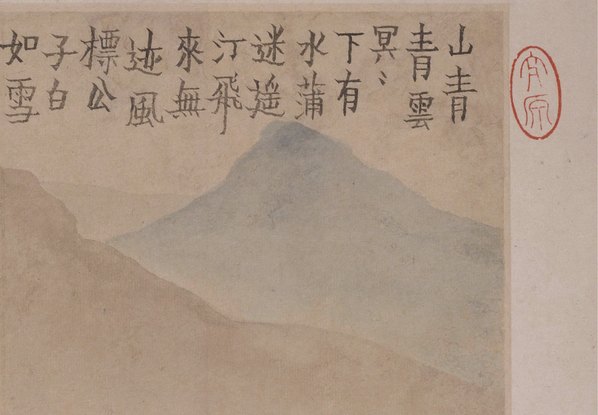 山青
青雲
冥〻
下有
水蒲
迷遙
汀飛
來無
迹風
標公
子白
如雪